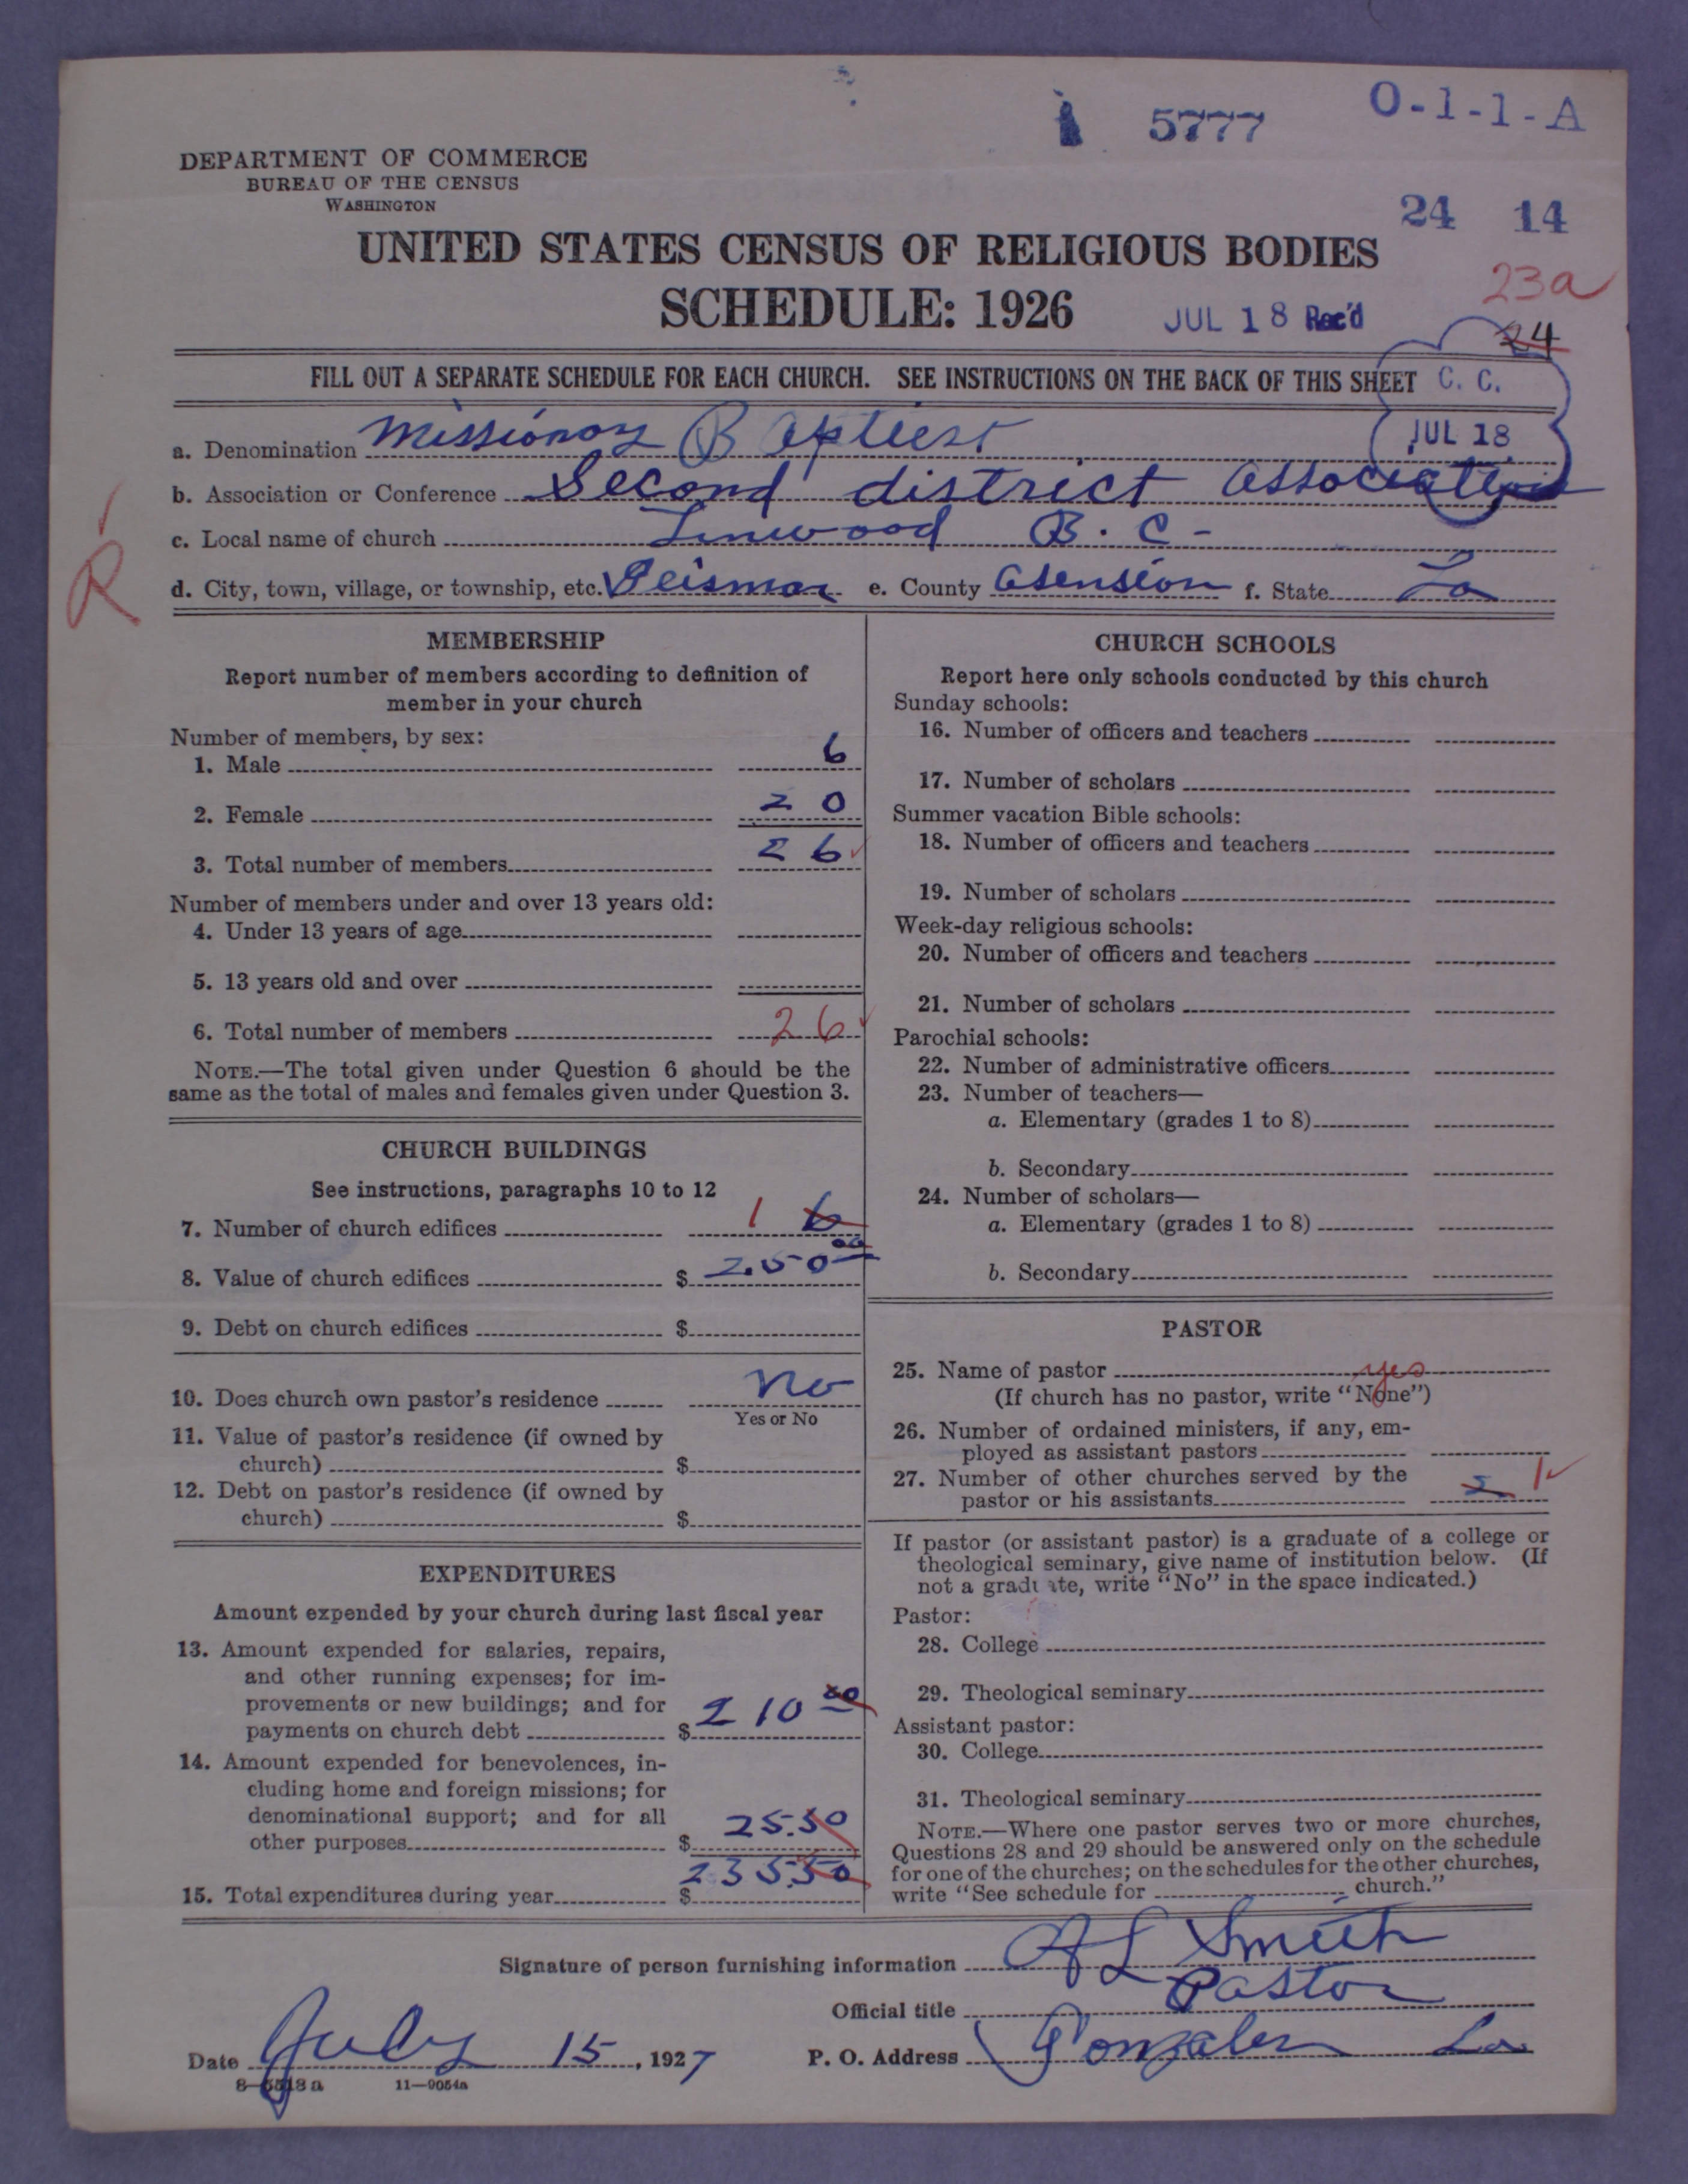 5777
O-1-1-A
DEPARTMENT OF COMMERCE
BUREAU OF THE CENSUS
WASHINGTON
24 14
UNITED STATES CENSUS OF RELIGIOUS BODIES
23a
SCHEDULE: 1926
JUL 18 Rec'd
24
FILL OUT A SEPARATE SCHEDULE FOR EACH CHURCH. SEE INSTRUCTIONS ON THE BACK OF THIS SHEET
C. C.
JUL 18
a. Denomination Missionary Baptiest
b. Association or Conference Second district association
c. Local name of church Linwood B. C-
R
d. City, town, village, or township, etc. Geismar e. County Asension f. State La
MEMBERSHIP
Report number of members according to definition of
member in your church
Number of members, by sex:
1. Male 6
2. Female 20
3. Total number of members 26
Number of members under and over 13 years old:
4. Under 13 years of age
5. 13 years old and over
6. Total number of members 26
NOTE.—The total given under Question 6 should be the
same as the total of males and females given under Question 3.
CHURCH BUILDINGS
See instructions, paragraphs 10 to 12
7. Number of church edifices 1 6
8. Value of church edifices $ 250 00
9. Debt on church edifices $
10. Does church own pastor's residence No
Yes or No
11. Value of pastor's residence (if owned by
church) $
12. Debt on pastor's residence (if owned by
church) $
EXPENDITURES
Amount expended by your church during last fiscal year
13. Amount expended for salaries, repairs,
and other running expenses; for im-
provements or new buildings; and for
payments on church debt $ 210 00
14. Amount expended for benevolences, in-
cluding home and foreign missions; for
denominational support; and for all
other purposes $ 25.50
15. Total expenditures during year $ 235.50
CHURCH SCHOOLS
Report here only schools conducted by this church
Sunday schools:
16. Number of officers and teachers
17. Number of scholars
Summer vacation Bible schools:
18. Number of officers and teachers
19. Number of scholars
Week-day religious schools:
20. Number of officers and teachers
21. Number of scholars
Parochial schools:
22. Number of administrative officers
23. Number of teachers—
a. Elementary (grades 1 to 8)
b. Secondary
24. Number of scholars—
a. Elementary (grades 1 to 8)
b. Secondary
PASTOR
25. Name of pastor yes
(If church has no pastor, write "None")
26. Number of ordained ministers, if any, em-
ployed as assistant pastors
27. Number of other churches served by the
pastor or his assistants 2 1
If pastor (or assistant pastor) is a graduate of a college or
theological seminary, give name of institution below. (If
not a graduate, write "No" in the space indicated.)
Pastor:
28. College
29. Theological seminary
Assistant pastor:
30. College
31. Theological seminary
NOTE.—Where one pastor serves two or more churches,
Questions 28 and 29 should be answered only on the schedule
for one of the churches; on the schedules for the other churches,
write "See schedule for church."
Signature of person furnishing information A L Smith
Official title Pastor
Date July 15, 1927 P. O. Address Gonzales La
8-5518a 11-9054a